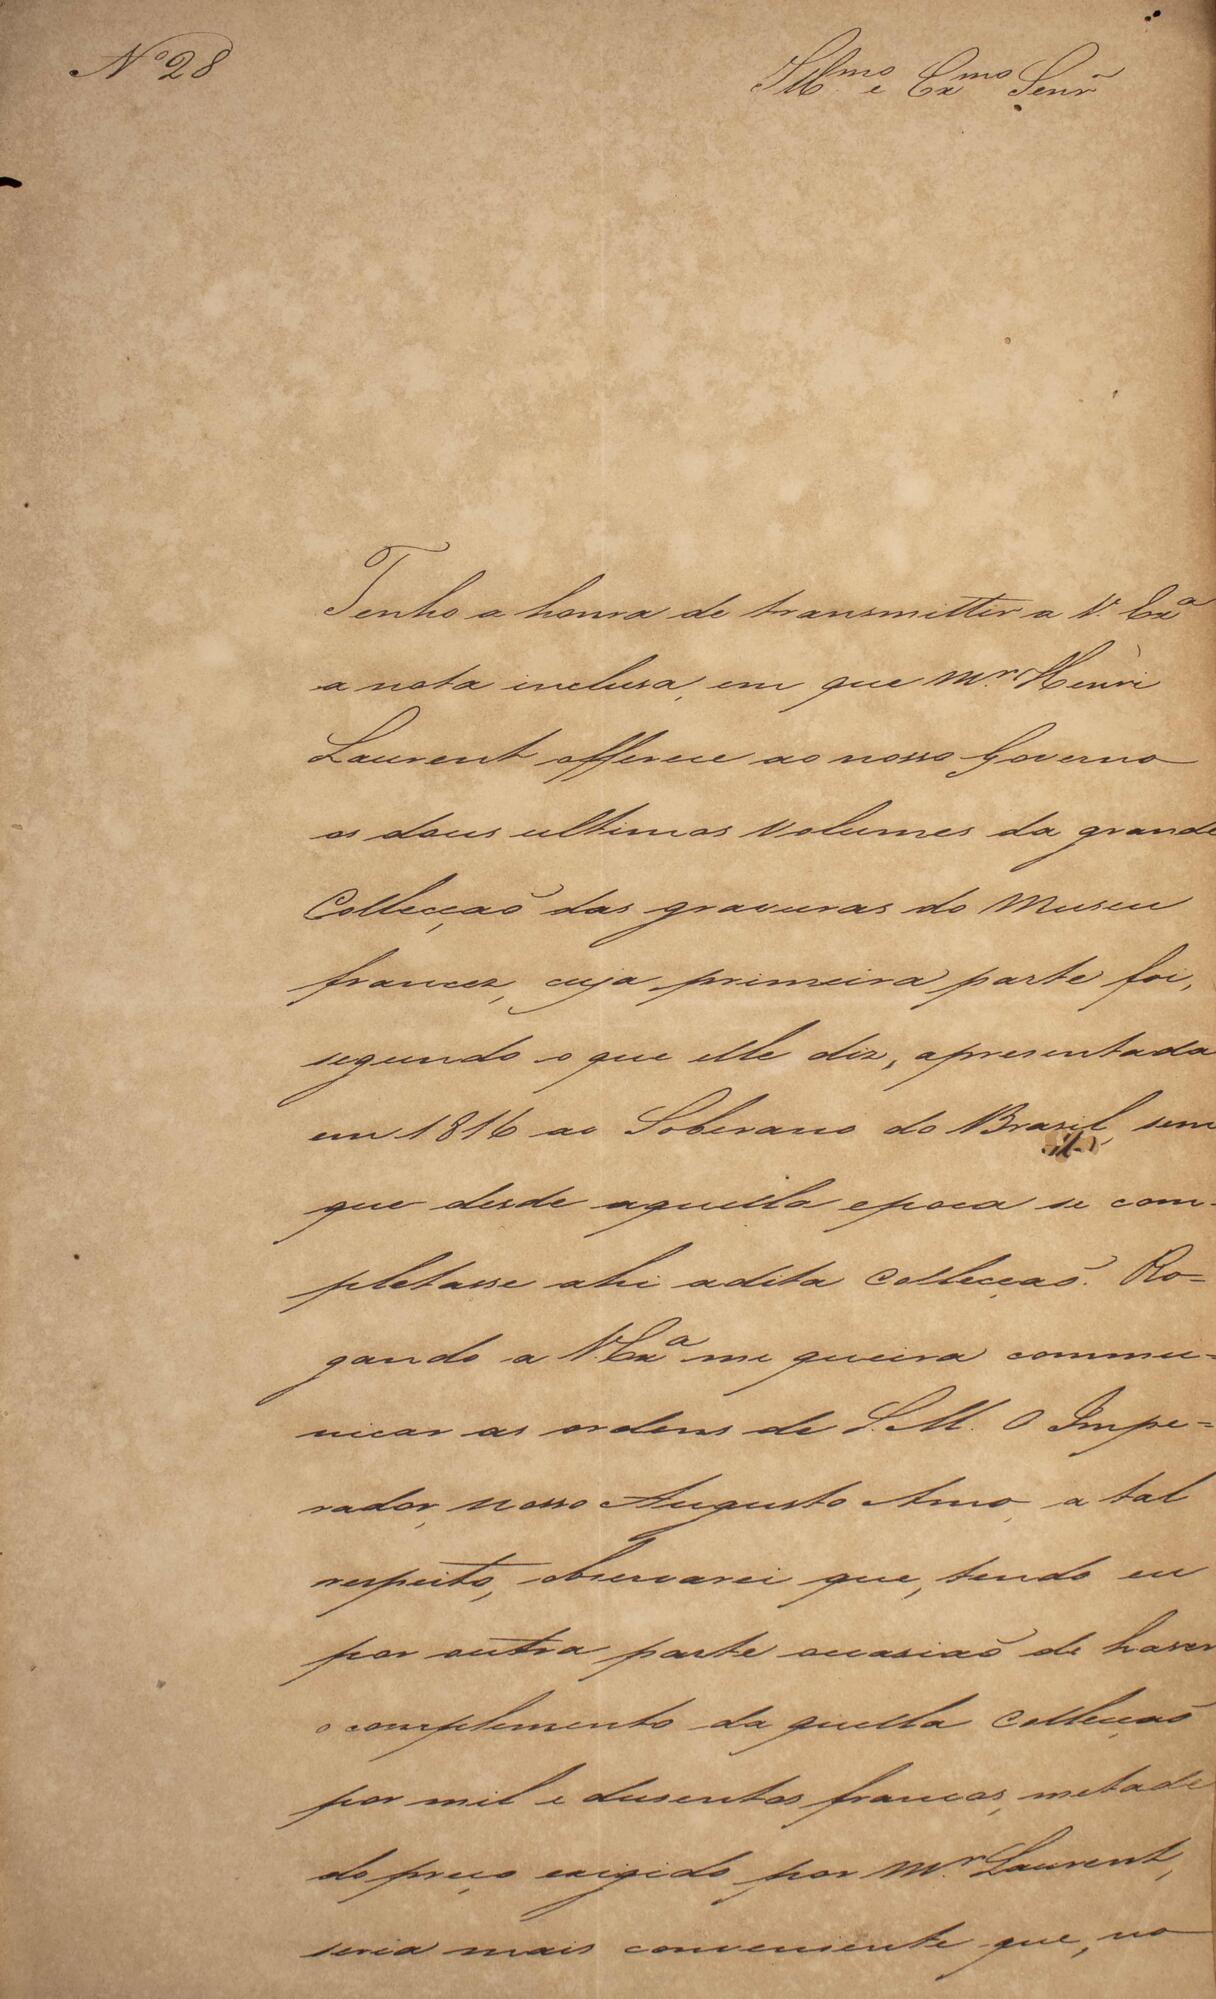 Nº 28
Illmo e Exmo Senr
Tenho a honra de transmittir a V. Exa
a nota inclusa, em que Mr. Henri
Laurent offerece ao nosso Governo
os dous ultimos volumes da grande
Collecçaõ das gravuras do Museu
francez, cuja primeira parte foi,
segundo o que elle diz, apresentada
em 1816 ao Soberano do Brasil, sem
que desde aquella epoca se com-
pletasse ahi a dita Collecçaõ. Ro=
gando a V. Exa me queira commu=
nicar as ordens de S. M. O Impe=
rador, nosso Augusto Amo, a tal
respeito, observarei que, tendo eu
por outra parte occasiaõ de haver
o complemento da quella Collecçaõ
por mil e dusentos francos, metade
do preço exigido por Mr. Laurent,
seria mais conveniente que, no